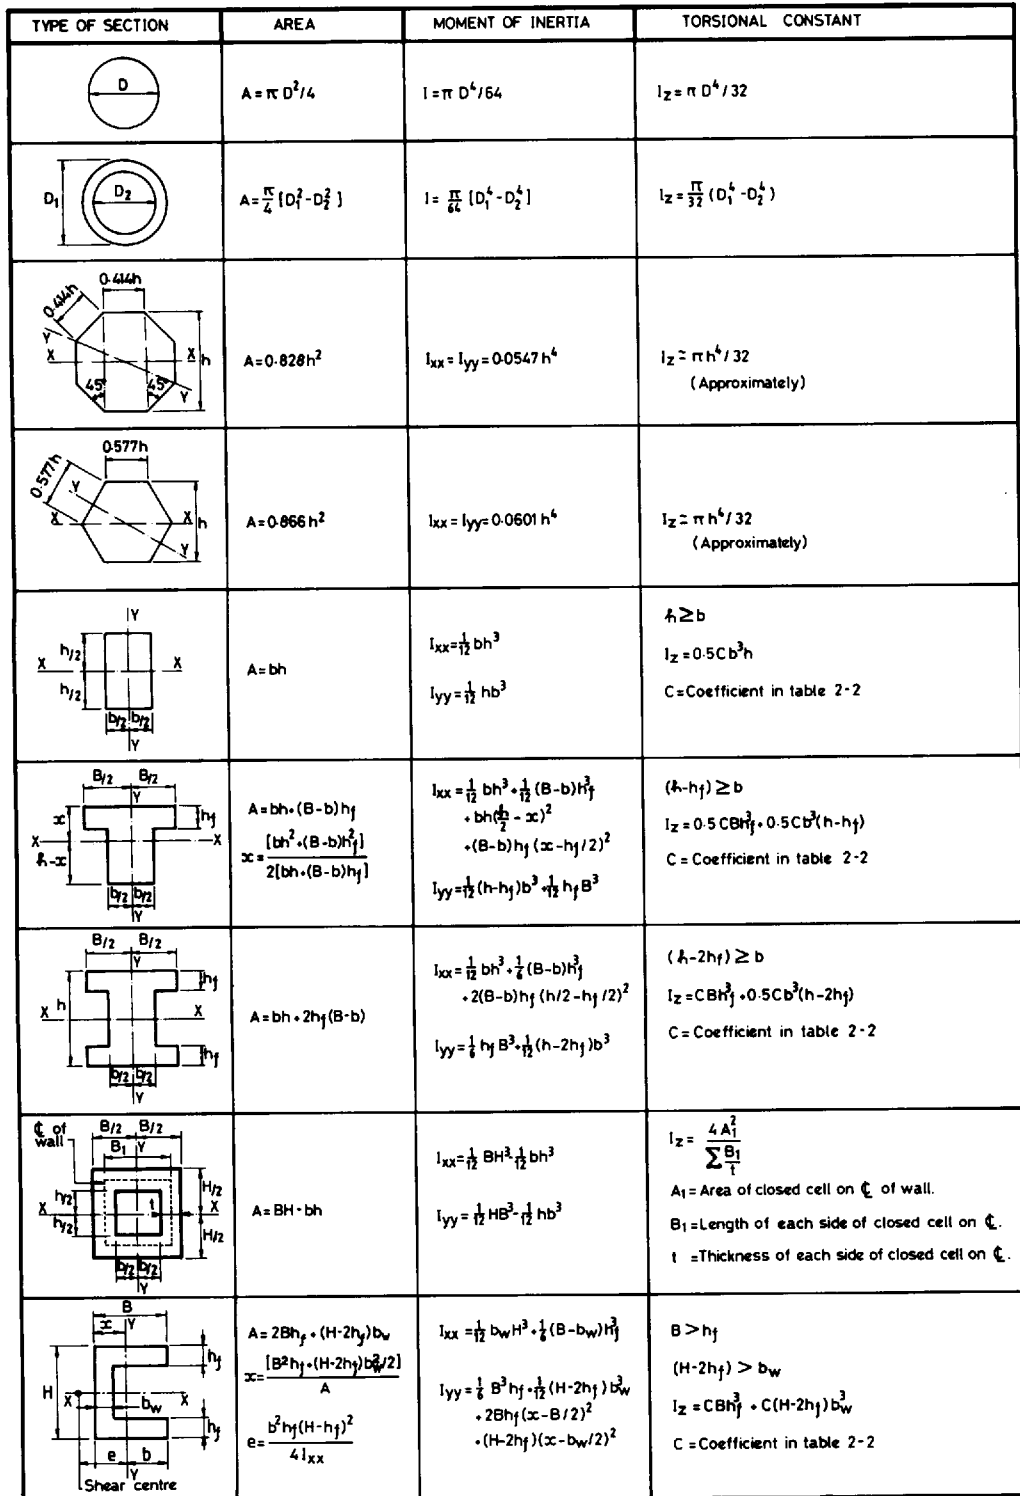 TYPE OF SECTION AREA MOMENT OF INERTIA TORSIONAL CONSTANT
D
A = π D²/4
I = π D⁴/64
I_z = π D⁴/32
D₁
D₂
A = π/4 [D₁² - D₂²]
I = π/64 [D₁⁴ - D₂⁴]
I_z = π/32 (D₁⁴ - D₂⁴)
0.414h
0.414h
Y
X X h
45° 45°
Y
A = 0.828h²
I_xx = I_yy = 0.0547 h⁴
I_z ≃ π h⁴/32
(Approximately)
0.577h
0.577h
Y
X X h
Y
A = 0.866 h²
I_xx = I_yy = 0.0601 h⁴
I_z ≃ π h⁴/32
(Approximately)
Y
h/2
X X
h/2
b/2 b/2
Y
A = bh
I_xx = 1/12 bh³
I_yy = 1/12 hb³
h ≥ b
I_z = 0.5Cb³h
C = Coefficient in table 2-2
B/2 B/2
Y
x h_f
X X
h-x
b/2 b/2
Y
A = bh + (B-b) h_f
x = [bh² + (B-b)h_f²] / 2[bh + (B-b)h_f]
I_xx = 1/12 bh³ + 1/12 (B-b)h_f³
+ bh(h/2 - x)²
+ (B-b) h_f (x-h_f/2)²
I_yy = 1/12 (h-h_f)b³ + 1/12 h_f B³
(h-h_f) ≥ b
I_z = 0.5 CBh_f³ + 0.5Cb³(h-h_f)
C = Coefficient in table 2-2
B/2 B/2
Y
h_f
h
X X
h_f
b/2 b/2
Y
A = bh + 2h_f(B-b)
I_xx = 1/12 bh³ + 1/6 (B-b)h_f³
+ 2(B-b)h_f (h/2 - h_f/2)²
I_yy = 1/6 h_f B³ + 1/12 (h-2h_f)b³
(h-2h_f) ≥ b
I_z = CBh_f³ + 0.5Cb³(h-2h_f)
C = Coefficient in table 2-2
℄ of
wall
B/2 B/2
B₁ Y
H/2
h/2
X t X
h/2
H/2
b/2 b/2
Y
A = BH - bh
I_xx = 1/12 BH³ - 1/12 bh³
I_yy = 1/12 HB³ - 1/12 hb³
I_z = 4A₁² / Σ B₁/t
A₁ = Area of closed cell on ℄ of wall.
B₁ = Length of each side of closed cell on ℄.
t = Thickness of each side of closed cell on ℄.
B
x Y
h_f
H
X b_w X
h_f
e b
Y
Shear centre
A = 2Bh_f + (H-2h_f)b_w
x = [B²h_f + (H-2h_f)b_w²/2] / A
e = b²h_f(H-h_f)² / 4I_xx
I_xx = 1/12 b_w H³ + 1/6 (B-b_w)h_f³
I_yy = 1/6 B³h_f + 1/12 (H-2h_f) b_w³
+ 2Bh_f(x-B/2)²
+ (H-2h_f)(x-b_w/2)²
B > h_f
(H-2h_f) > b_w
I_z = CBh_f³ + C(H-2h_f)b_w³
C = Coefficient in table 2-2